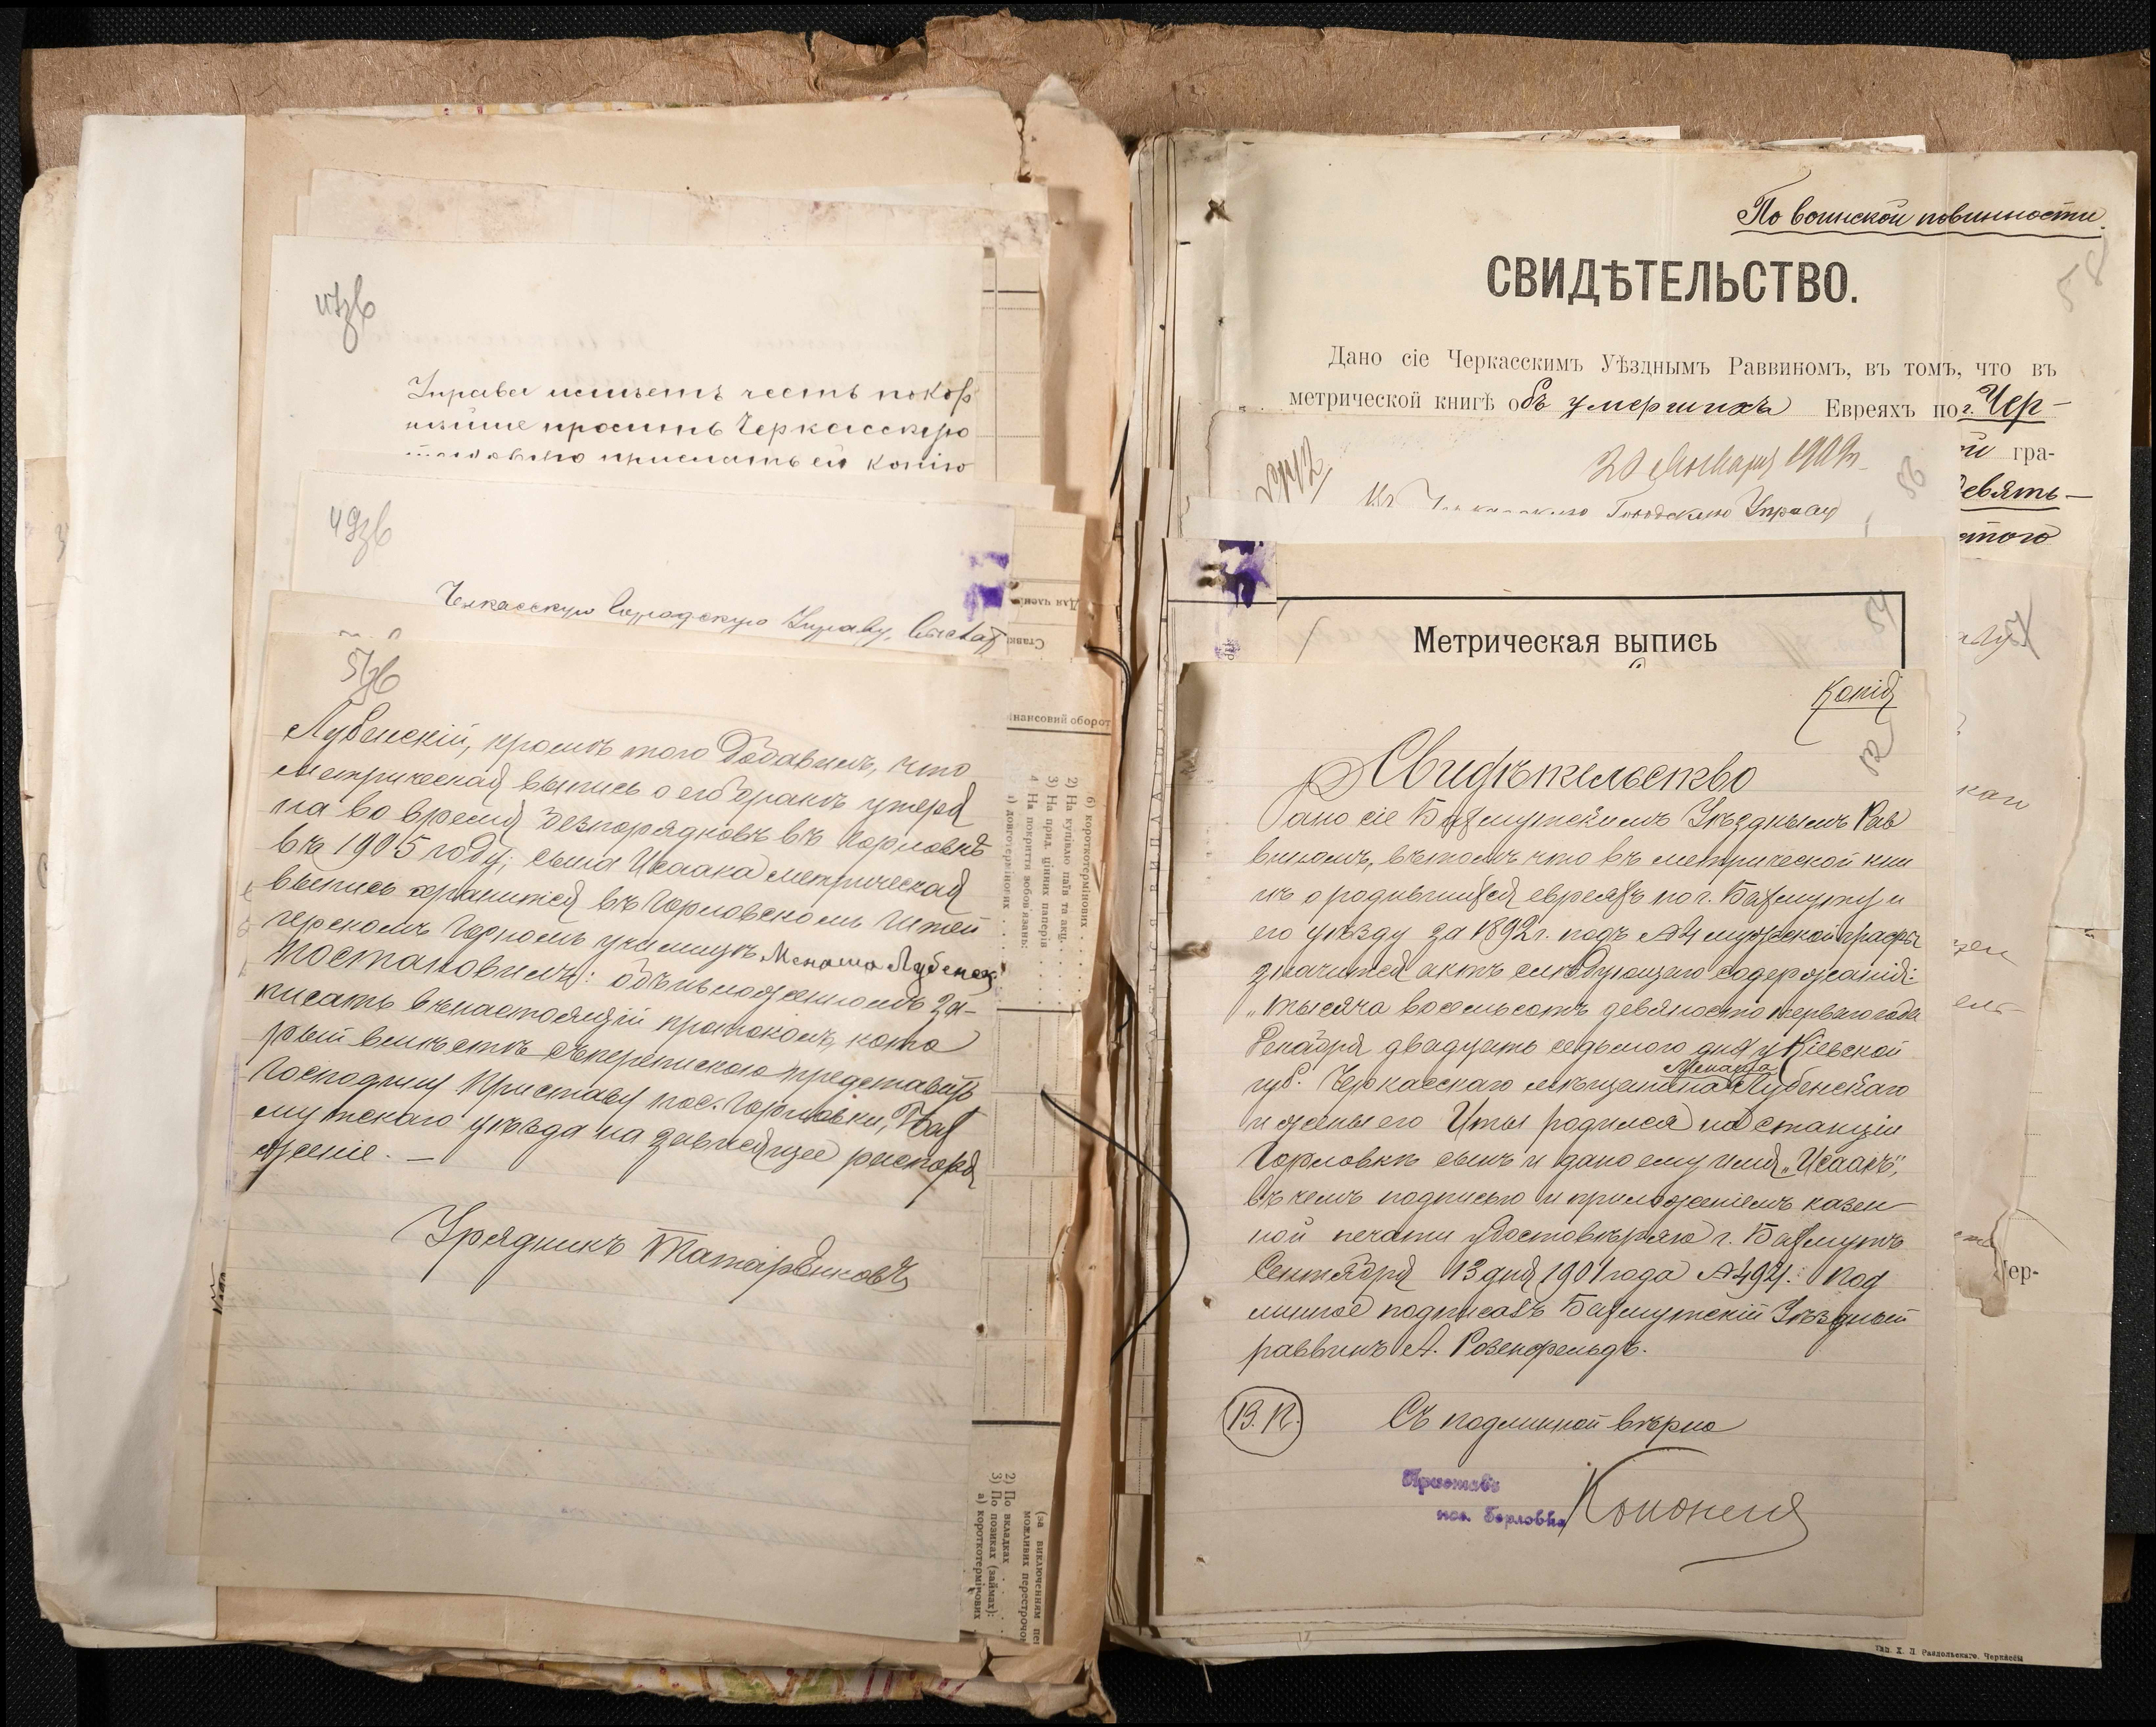 47зв
Управа имѣетъ честь покор
нѣйше проситъ Черкасскую
прислать ей копію
49зв
Черкасскую Городскую Управу.
Для члені
Ставк
51зв
Лубенскій, кромѣ того добавилъ, что
метрическая выпись о его бракѣ утеря
на во время безпорядковъ въ Горловкѣ
въ 1905 году; сына Исаака метрическая
выпись хранится въ Горловскомъ Штей
герскомъ Горномъ училищѣ. Меноша Лубенск
Постановилъ: объ изложенномъ за-
писать въ настоящій протоколъ, кото
рый вмѣстѣ съ перепискою представить
Господину Приставу пос. Горловки, Бах
мутскаго уѣзда на зависящее распоря
женіе. —
Урядникъ
інансовий оборот
б) короткотермінових
2) На купівлю паїв та акц.
3) На придб. цінних паперів
4) На покриття зобов'язань:
а) довготермінових
(за виключенням
можливих перестрочок
2) По вкладках
3) По позиках (займах):
а) короткотермінових
По воинской повинности.
58
СВИДѢТЕЛЬСТВО.
Дано сіе Черкасскимъ Уѣзднымъ Раввиномъ, въ томъ, что въ
метрической книгѣ объ умершихъ Евреяхъ по г. Чер-
й гра-
девять-
стого
20 Января 1909 г.
56
Въ Черкасскую Городскую Управу
54
Метрическая выпись
Копія
52
Свидѣтельство
Дано сіе Бахмутскимъ Уѣзднымъ Рав
виномъ, въ томъ что въ метрической кни
гѣ о родившихся евреяхъ по г. Бахмуту и
его уѣзду за 1892 г. подъ №4 мужской графы
значится актъ слѣдующаго содержанія:
„Тысяча восемьсотъ девяносто перваго года
Декабря двадцать седьмого дня у Кіевской
Менаша
губ. Черкасскаго мѣщанина Лубенскаго
и жены его Иты родился на станціи
Горловкѣ сынъ и дано ему имя „Исаакъ",
въ чемъ подписью и приложеніемъ казен
ной печати удостовѣряю г. Бахмутъ
Сентября 13 дня 1901 года №494. Под
линное подписалъ Бахмутскій Уѣздный
раввинъ А. Розенфельдъ.
В.П.
Съ подлинной вѣрно
Приставъ
пос. Горловки
ер-
Тип. Х. Л. Раздольскаго, Черкассы